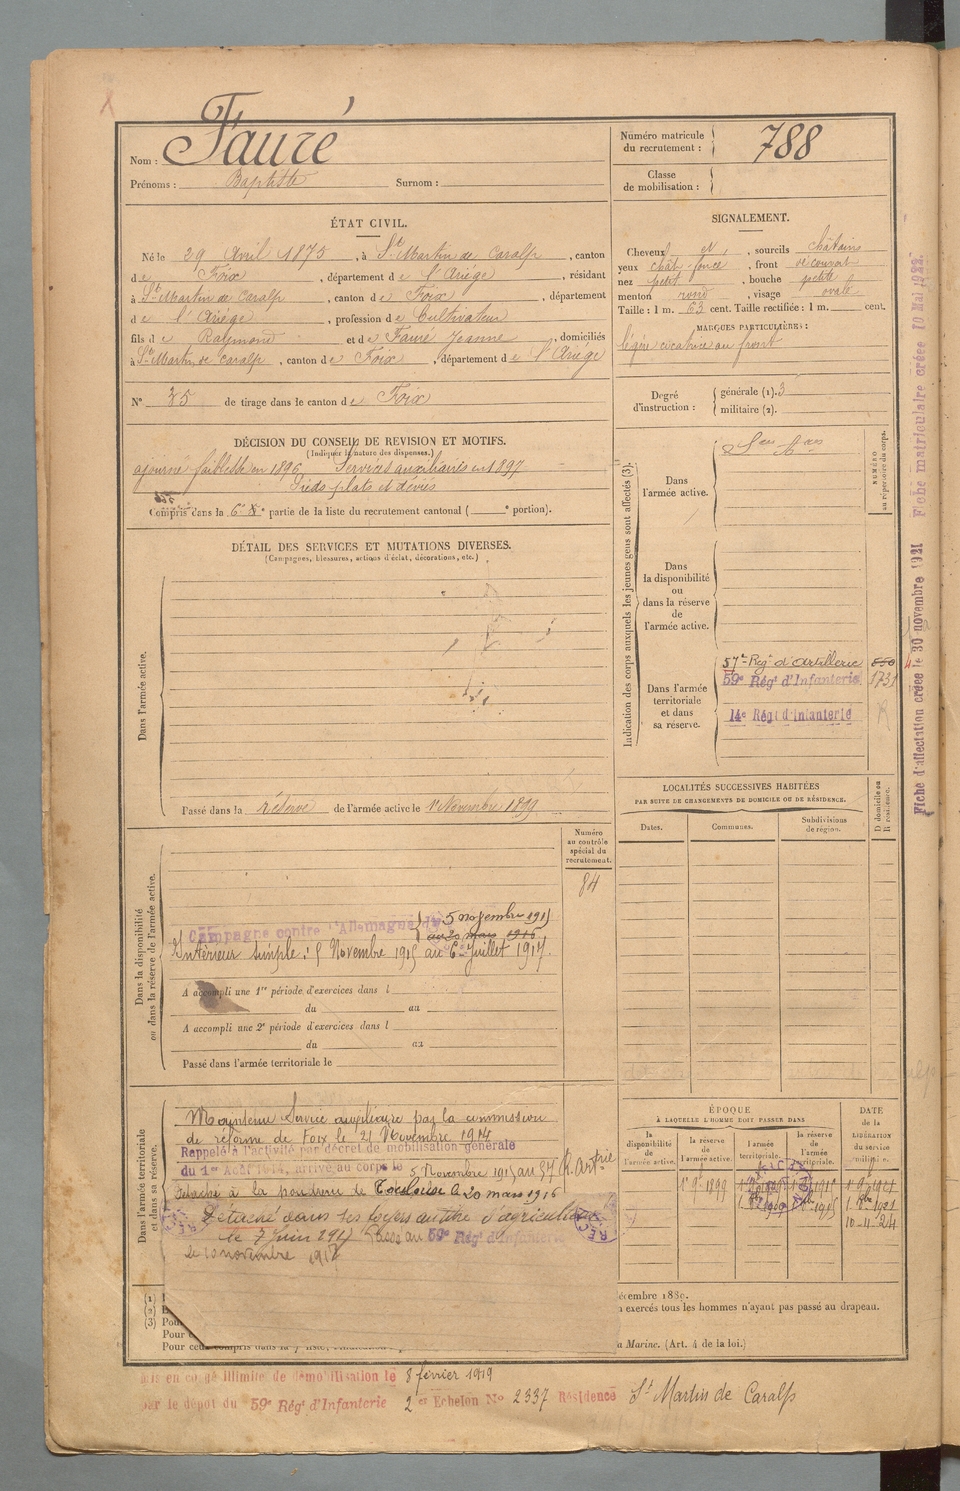 Nom : Fauré
Prénoms : Baptiste Surnom :
Numéro matricule du recrutement : 788
Classe de mobilisation :
ÉTAT CIVIL.
Né le 29 Avril 1875, à St Martin de Caralp, canton
de Foix, département de l'Ariège, résidant
à St Martin de Caralp, canton de Foix, département
de l'Ariège, profession de Cultivateur
fils de Raymond et de Faure Jeanne, domiciliés
à St Martin de Caralp, canton de Foix, département de l'Ariège
N° 35 de tirage dans le canton de Foix
DÉCISION DU CONSEIL DE REVISION ET MOTIFS.
(Indiquer la nature des dispenses.)
ajourné faiblesse en 1896 Services auxiliaires en 1897
Pieds plats et déviés
Compris dans la 6e partie de la liste du recrutement cantonal ( e portion).
SIGNALEMENT.
Cheveux et, sourcils châtains
yeux chât-foncé, front découvert
nez petit, bouche petite
menton rond, visage ovale
Taille : 1 m. 63 cent. Taille rectifiée : 1 m. cent.
MARQUES PARTICULIÈRES :
légère cicatrice au front
Degré d'instruction :
générale (1). 3
militaire (2).
DÉTAIL DES SERVICES ET MUTATIONS DIVERSES.
(Campagnes, blessures, actions d'éclat, décorations, etc.)
Dans l'armée active.
Passé dans la réserve de l'armée active le 1er Novembre 1899
Indication des corps auxquels les jeunes gens sont affectés (3).
NUMÉRO au répertoire du corps.
Dans l'armée active.
Dans la disponibilité ou dans la réserve de l'armée active.
Dans l'armée territoriale et dans sa réserve.
57e Regt d'Artillerie
59e Régt d'Infanterie 1731
14e Régt d'Infanterie
Fiche d'affectation créée le 30 novembre 1921 Fiche matriculaire créée 10 Mai 1922
LOCALITÉS SUCCESSIVES HABITÉES
PAR SUITE DE CHANGEMENTS DE DOMICILE OU DE RÉSIDENCE.
Dates. Communes. Subdivisions de région. D domicile ou R résidence.
Dans la disponibilité ou dans la réserve de l'armée active.
Numéro au contrôle spécial du recrutement.
84
Campagne contre l'Allemagne du 5 novembre 1915
au 20 mars 1916
Intérieur simple : 5 Novembre 1915 au 6 Juillet 1917.
A accompli une 1re période d'exercices dans l
du au
A accompli une 2e période d'exercices dans l
du au
Passé dans l'armée territoriale le
Dans l'armée territoriale et dans sa réserve.
Maintenu Service auxiliaire par la commission
de réforme de Foix le 21 Novembre 1914
Rappelé à l'activité par décret de mobilisation générale
du 1er Août 1914, arrivé au corps le 5 Novembre 1915 au 57 R. Artrie
Détaché à la poudrerie de Toulouse le 20 mars 1916
Détaché dans ses foyers au titre d'agriculteur
le 7 Juin 1917 Passé au 59e Régt d'Infanterie
le 10 novembre
ÉPOQUE
À LAQUELLE L'HOMME DOIT PASSER DANS
la disponibilité de l'armée active.
la réserve de l'armée active.
l'armée territoriale.
la réserve de l'armée territoriale.
DATE de la LIBÉRATION du service militaire.
1er 9bre 1899
10-11-24
(1)
(2)
(3) Pou
Pour
Pour ceux compris dans la
décembre 1889.
n exercés tous les hommes n'ayant pas passé au drapeau.
a Marine. (Art. 4 de la loi.)
mis en congé illimité de démobilisation le 8 février 1919
par le dépôt du 59e Régt d'Infanterie 2e Echelon No 2337 Résidence St Martin de Caralp